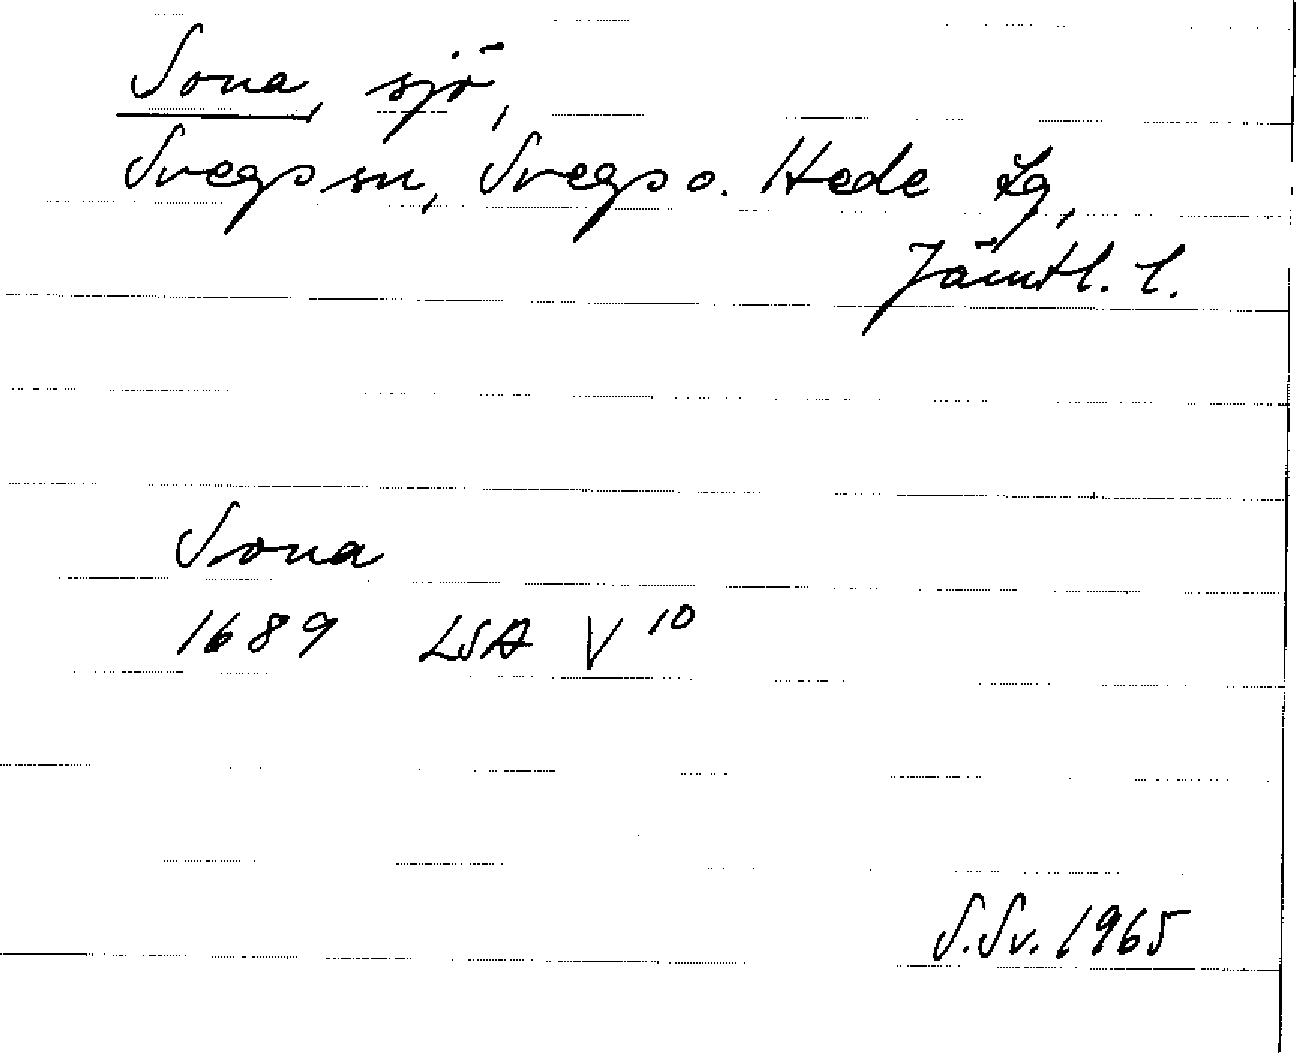 Sona, sjö,
Svegs sn, Svegs o. Hede tg,
Jämtl. l.
Sona
1689 LSA V 10
S.Sv. 1965